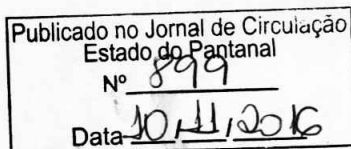 Publicado no Jornal de Circulação
Estado do Pantanal
Nº 899
Data 10, 11, 2016